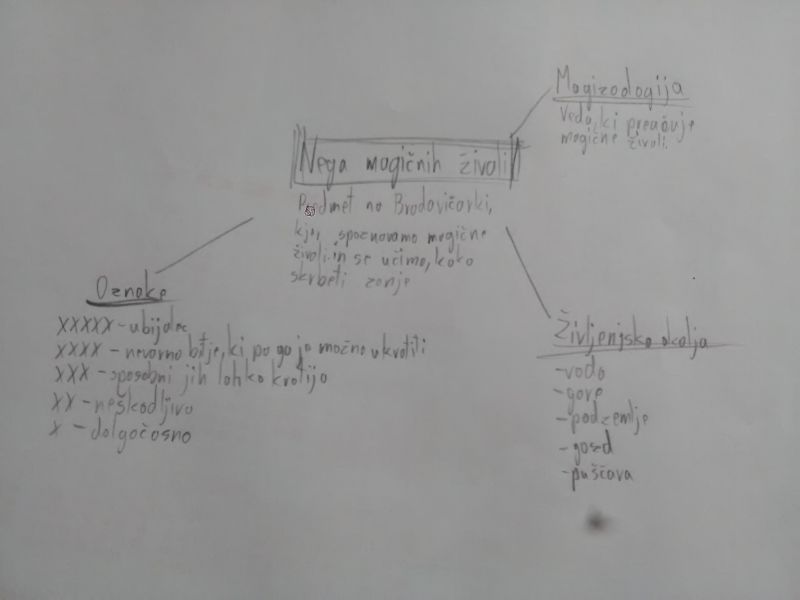 Magizoologija
Veda, ki preučuje
magične živali.
Nega magičnih živali
Predmet na Bradavičarki,
kjer spoznavamo magične
živali in se učimo, kako
skrbeti zanje
Oznake
XXXXX - ubijalec
XXXX - nevarno bitje, ki pa ga je možno ukrotiti
XXX - sposobni jih lahko krotijo
XX - neškodljivo
X - dolgočasno
Življenjska okolja
- voda
- gore
- podzemlje
- gozd
- puščava